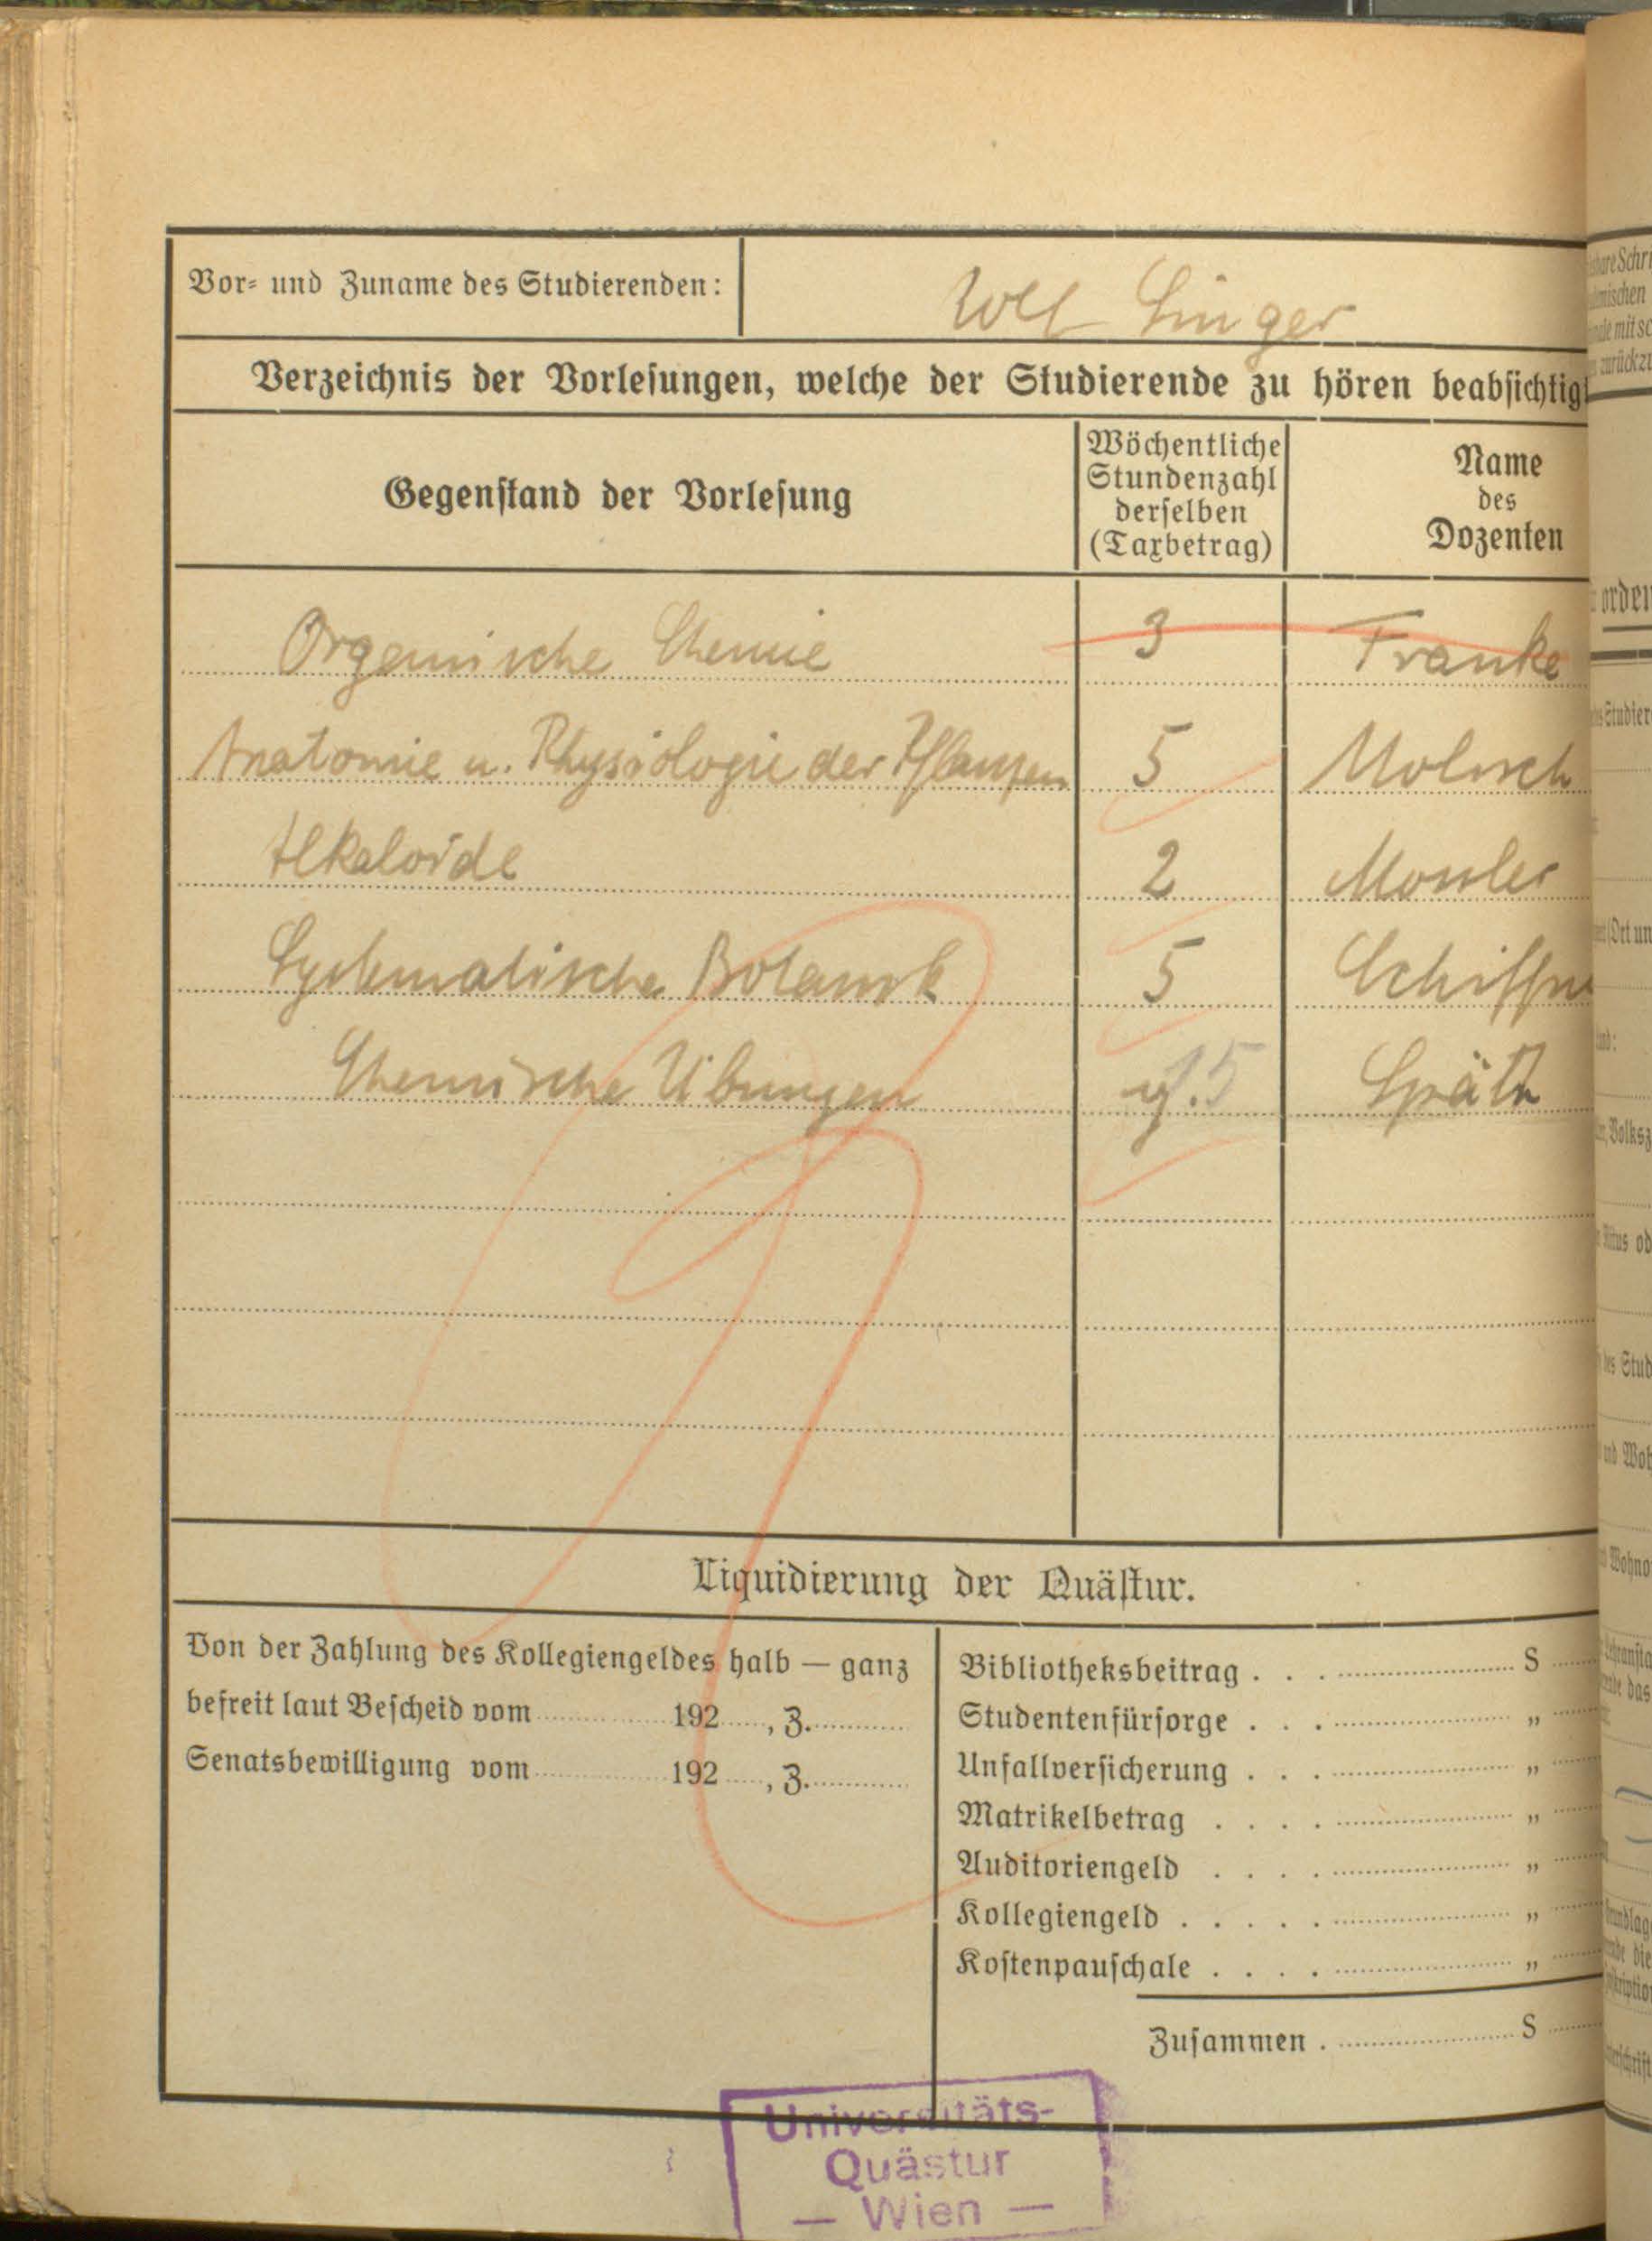 Vor- und Zuname des Studierenden:
Wolf Singer
Verzeichnis der Vorlesungen, welche der Studierende zu hören beabsichtig
Gegenstand der Vorlesung
Wöchentliche
Stundenzahl
derselben
(Taxbetrag)
Name
des
Dozenten
Organische Chemie 3 Franke
Anatomie u. Physiologie der Pflanzen 5 Molisch
Alkaloide 2
Systematische Botanik 5 Schiffn
Chemische Übungen 15 Späth
Liquidierung der Quästur.
Von der Zahlung des Kollegiengeldes halb — ganz
befreit laut Bescheid vom 192 , Z.
Senatsbewilligung vom 192 , Z.
Bibliotheksbeitrag . . . S
Studentenfürsorge . . . „
Unfallversicherung . . . „
Matrikelbetrag . . . . „
Auditoriengeld . . . . „
Kollegiengeld . . . . . „
Kostenpauschale . . . . „
Zusammen . S
Universitäts-
Quästur
— Wien —